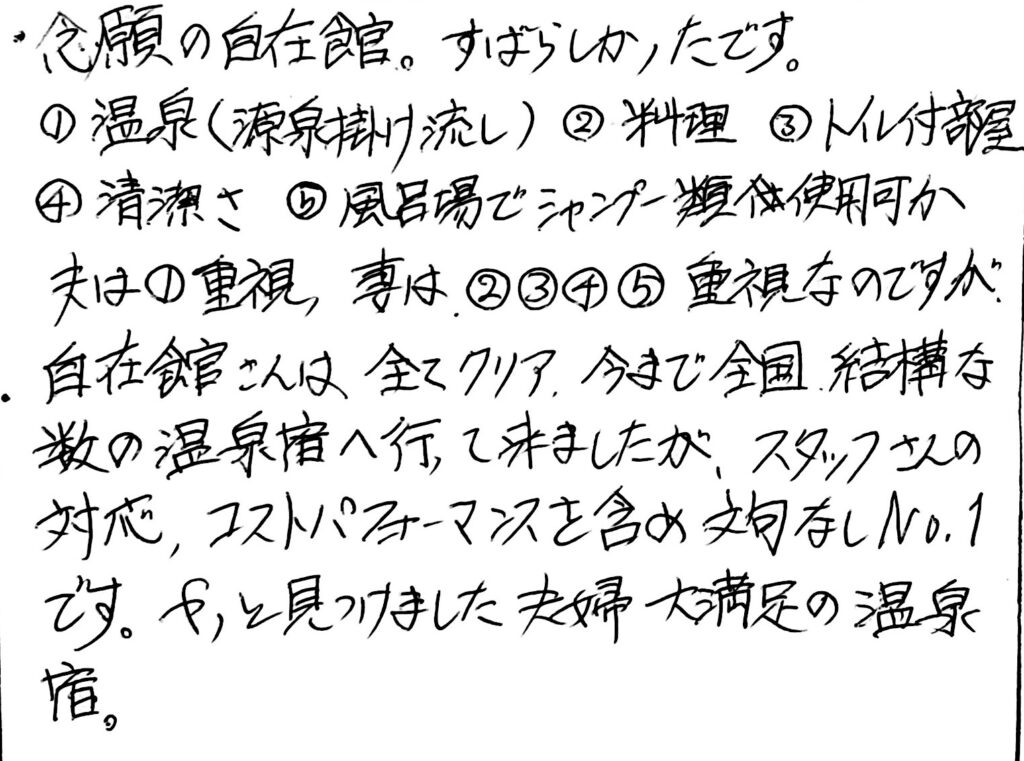 ・念願の自在館。すばらしかったです。
① 温泉(源泉掛け流し) ② 料理 ③ トイレ付部屋
④ 清潔さ ⑤ 風呂場でシャンプー類使用可か
夫は①重視, 妻は、②③④⑤重視なのですが、
自在館さんは、全てクリア、今まで全国、結構な
数の温泉宿へ行って来ましたが、スタッフさんの
対応, コストパフォーマンスを含め文句なしNo.1
です。やっと見つけました夫婦大満足の温泉
宿。